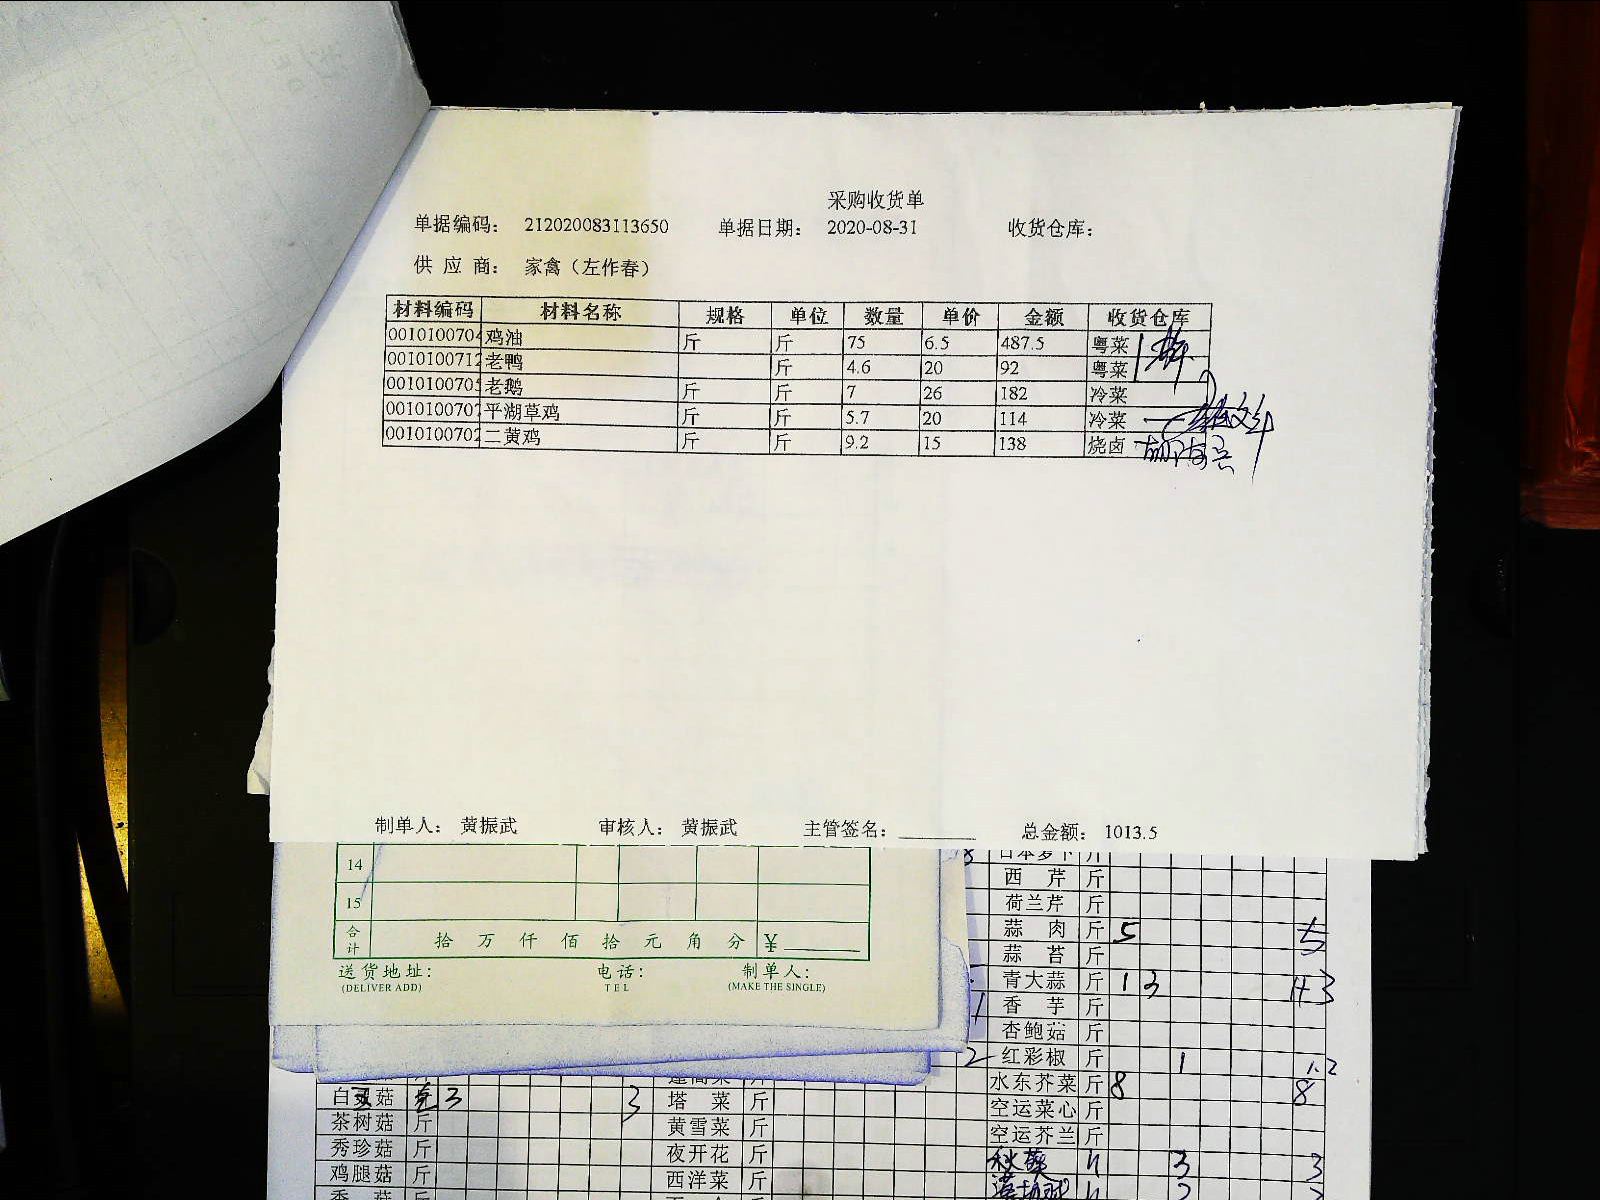 采购收货单
单据编码： 212020083113650 单据日期： 2020-08-31 收货仓库：
供 应 商： 家禽（左作春）
材料编码 材料名称 规格 单位 数量 单价 金额 收货仓库
0010100704 鸡油 斤 斤 75 6.5 487.5 粤菜
0010100712 老鸭 斤 4.6 20 92 粤菜
001010070 老鹅 斤 斤 7 26 182 冷菜
001010070 平湖草鸡 斤 斤 5.7 20 114 冷菜
0010100702 二黄鸡 斤 斤 9.2 15 138 烧卤
制单人： 黄振武 审核人： 黄振武 主管签名： 总金额： 1013.5
14
15
合计 拾 万 仟 佰 拾 元 角 分 ¥
送货地址： 电话： 制单人：
(DELIVER ADD) TEL (MAKE THE SINGLE)
日本萝卜 斤
西 芹 斤
荷兰芹 斤
蒜 肉 斤 5 5
蒜 苔 斤
青大蒜 斤 1 3 1+3
香 芋 斤
杏鲍菇 斤
2 红彩椒 斤 1 1.2
水东芥菜 斤 8 8
空运菜心 斤
空运芥兰 斤
秋葵 3 3
白灵菇 3 3 塔 菜 斤
茶树菇 斤 黄雪菜 斤
秀珍菇 斤 夜开花 斤
鸡腿菇 斤 西洋菜 斤